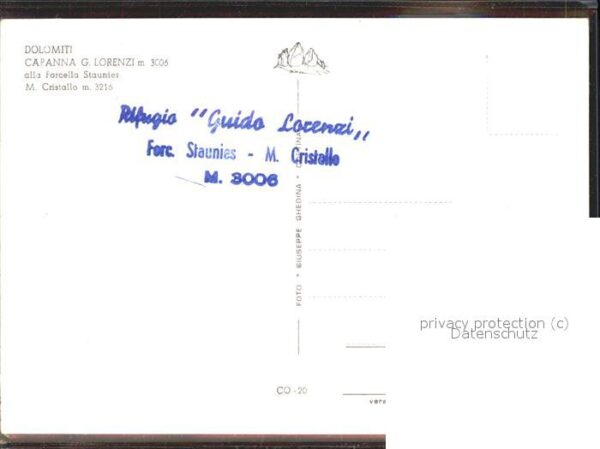 DOLOMITI
CAPANNA G. LORENZI m. 3006
alla Forcella Staunies
M. Cristallo m. 3216
Rifugio "Guido Lorenzi"
Forc. Staunies - M. Cristallo
M. 3006
FOTO * GIUSEPPE GHEDINA *
CO - 20
privacy protection (c)
Datenschutz